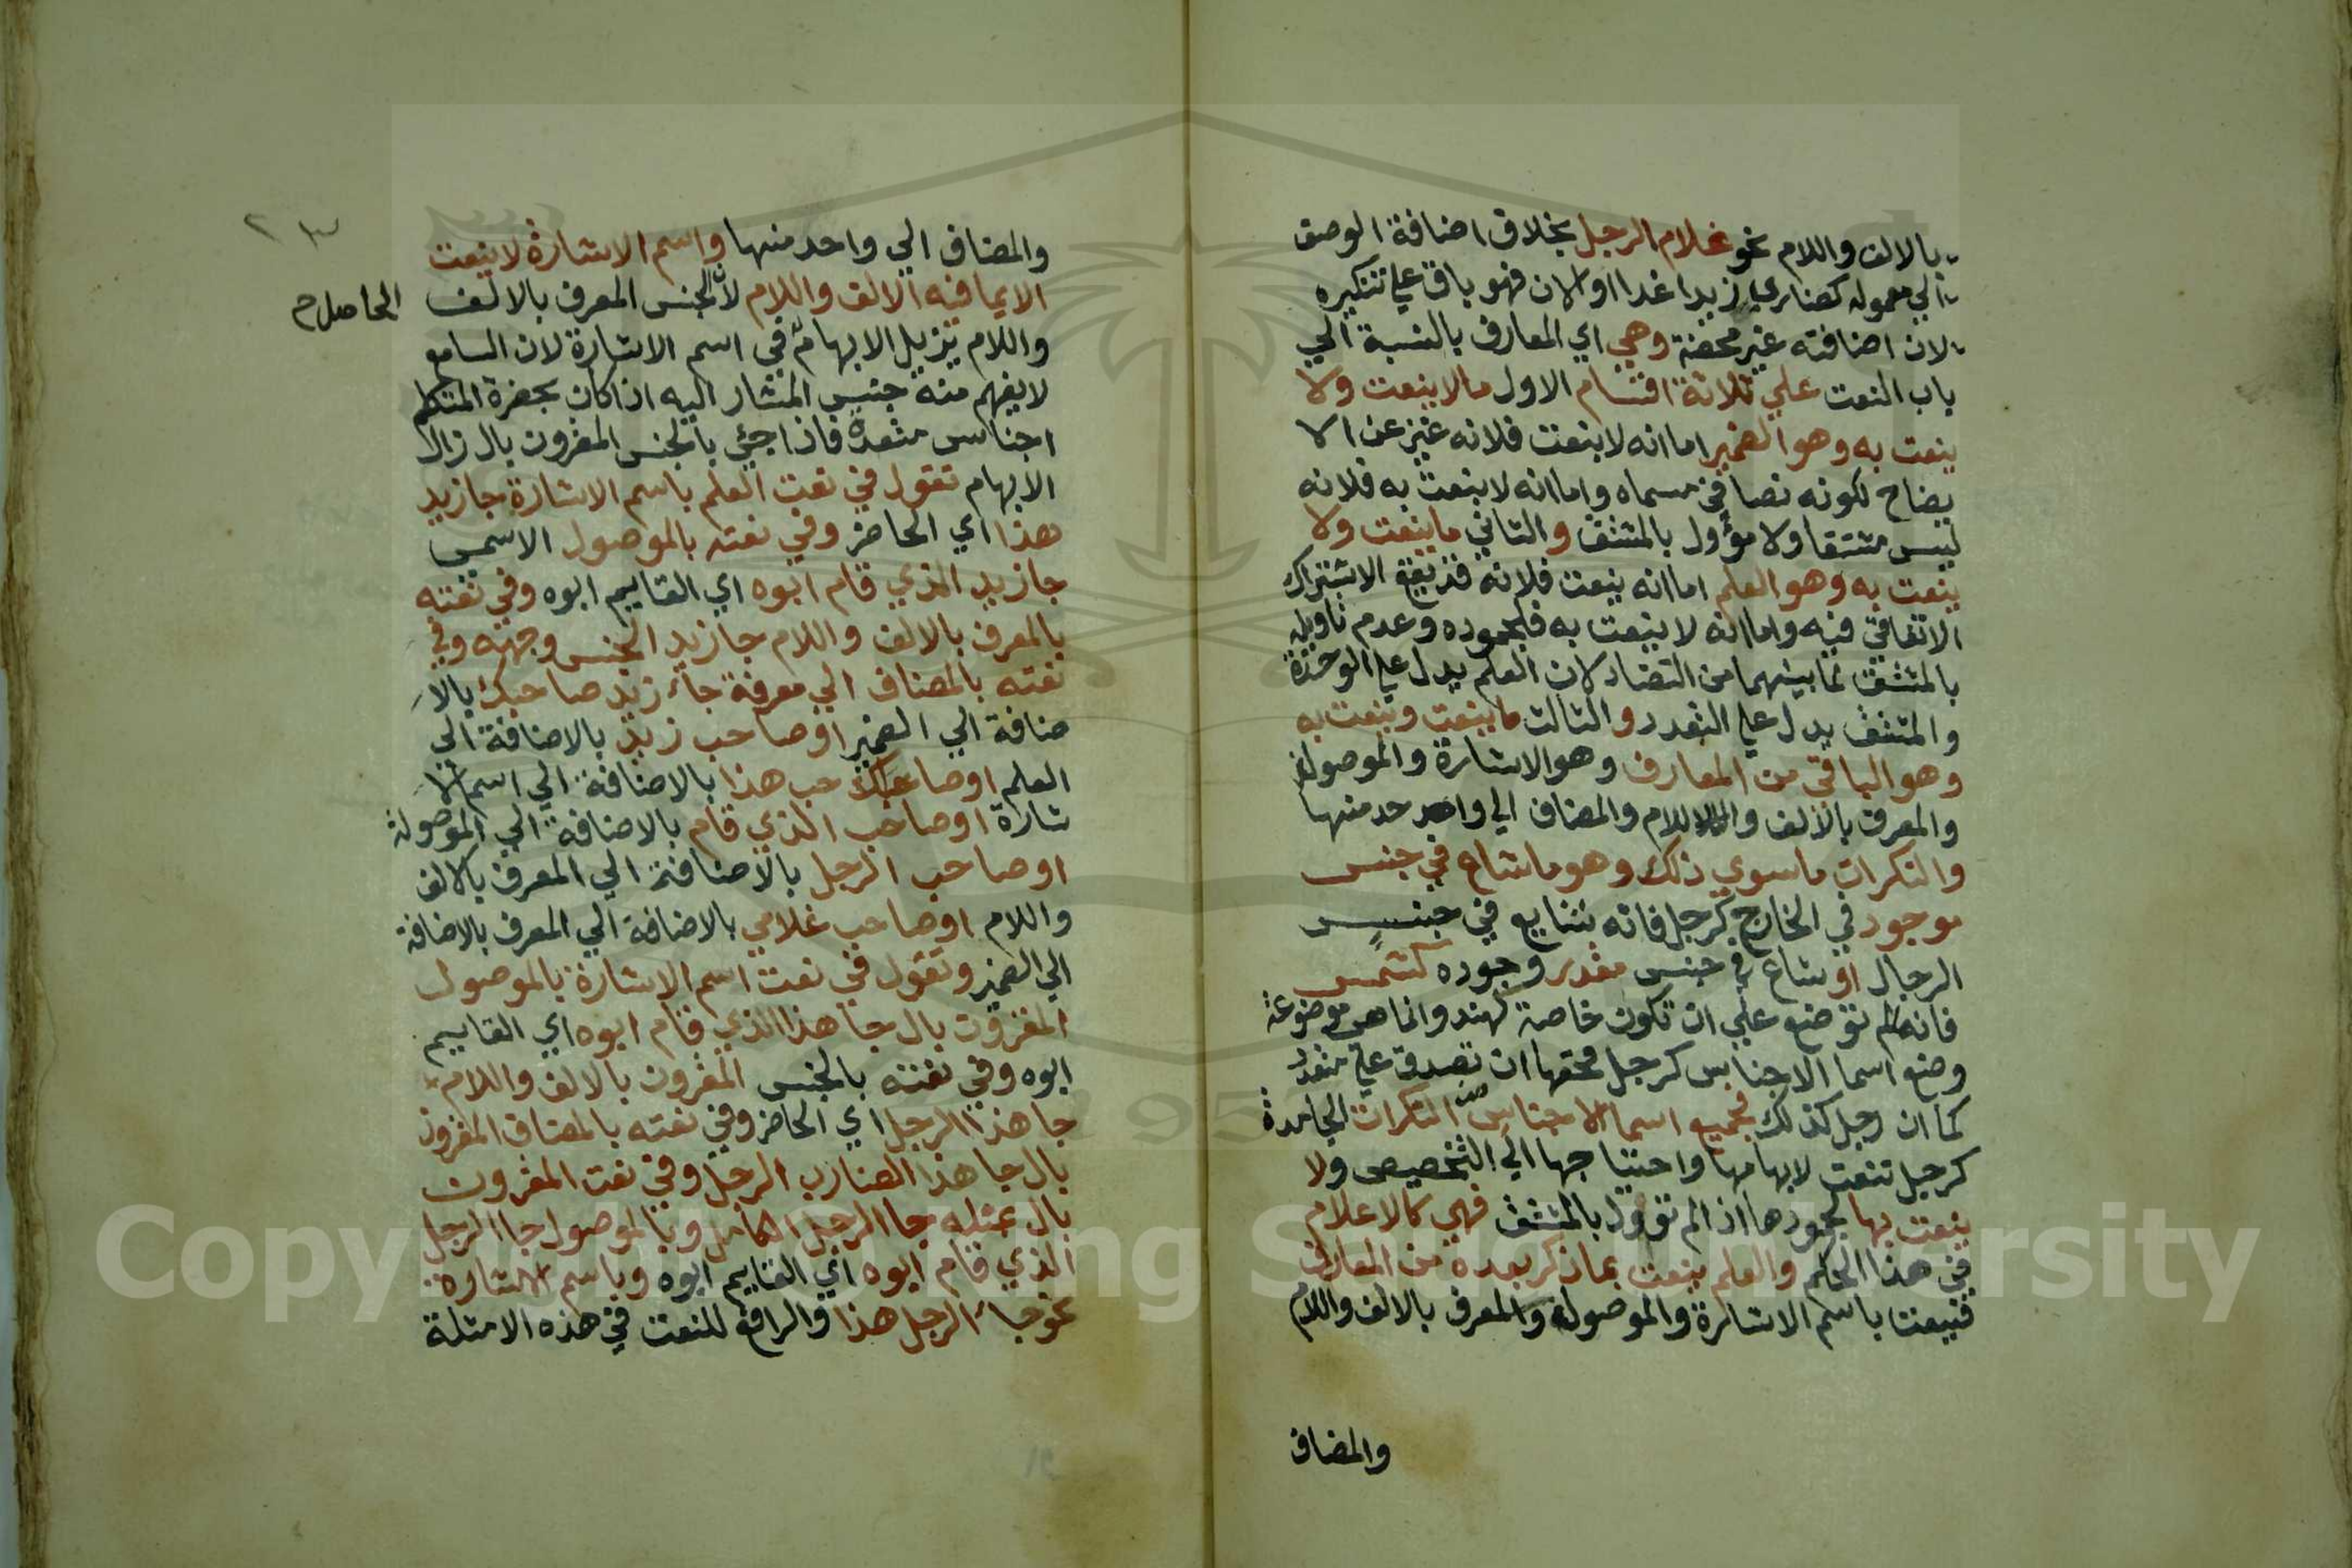 بالالف واللام نحو غلام الرجل بخلاف اضافة الوصف
الي معموله كضارب زيد غدا او الان فهو باق علي تنكيره
لان اضافته غير محضة وهي اي المعارف بالنسبة الي
باب النعت علي ثلاثة اقسام الاول ما لا ينعت ولا
ينعت به وهو الضمير اما انه لا ينعت فلانه غني عن الا
يضاح لكونه نصا في مسماه واما انه لا ينعت به فلانه
ليس مشتقا ولا مؤول بالمشتق والثاني ما ينعت ولا
ينعت به وهو العلم اما انه ينعت فلانه قد يقع الاشتراك
الاتفاقي فيه واما انه لا ينعت به فلجموده وعدم تاويله
بالمشتق لما بينهما من التضاد لان العلم يدل علي الوحدة
والمشتق يدل علي التعدد والثالث ما ينعت وينعت به
وهو الباقي من المعارف وهو الاشارة والموصول
والمعرف بالالف واللام والمضاف الي واحد منها
والنكرات ما سوي ذلك وهو ما شاع في جنس
موجود في الخارج كرجل فانه شايع في جنس
الرجال او شاع في جنس مقدر وجوده كشمس
فانها لم توضع علي ان تكون خاصة كهند وانما هي موضوعة
وضع اسما الاجناس كرجل فحقها ان تصدق علي متعدد
كما ان رجل كذلك فجميع اسما الاجناس من النكرات الجامدة
كرجل تنعت لابهامها واحتياجها الي التخصيص ولا
ينعت بها لجمودها اذ لم تؤول بالمشتق فهي كالاعلام
في هذا الحكم والعلم ينعت بما ذكر بعده من المعارف
فينعت باسم الاشارة والموصول والمعرف بالالف واللام
والمضاف
٢٣
والمضاف الي واحد منها واسم الاشارة لا ينعت
الا بما فيه الالف واللام لان الجنس المعرف بالالف
الحاصل صح
واللام يزيل الابهام في اسم الاشارة لان السامع
لا يفهم منه جنس المشار اليه اذا كان بحضرة المتكلم
اجناس متعددة فاذا جئ بالجنس المقرون بال زال
الابهام تقول في نعت العلم باسم الاشارة جا زيد
هذا اي الحاضر وفي نعته بالموصول الاسمي
جا زيد الذي قام ابوه اي القايم ابوه وفي نعته
بالمعرف بالالف واللام جا زيد الحسن وجهه وفي
نعته بالمضاف الي معرفة جاء زيد صاحبك بالا
ضافة الي الضمير او صاحب زيد بالاضافة الي
العلم او صاحب هذا بالاضافة الي اسم الا
شارة او صاحب الذي قام بالاضافة الي الموصول
او صاحب الرجل بالاضافة الي المعرف بالالف
واللام او صاحب غلامي بالاضافة الي المعرف بالاضافة
الي الضمير وتقول في نعت اسم الاشارة بالموصول
المقرون بال جا هذا الذي قام ابوه اي القايم
ابوه وفي نعته بالجنس المقرون بالالف واللام
جا هذا الرجل اي الحاضر وفي نعته بالمضاف المقرون
بال جا هذا الضارب الرجل وفي نعت المقرون
بال بمثله جا الرجل الكامل وبالموصول جا الرجل
الذي قام ابوه اي القايم ابوه وباسم الاشارة
نحو جاء الرجل هذا والرافع للنعت في هذه الامثلة
Copyright © King Saud University